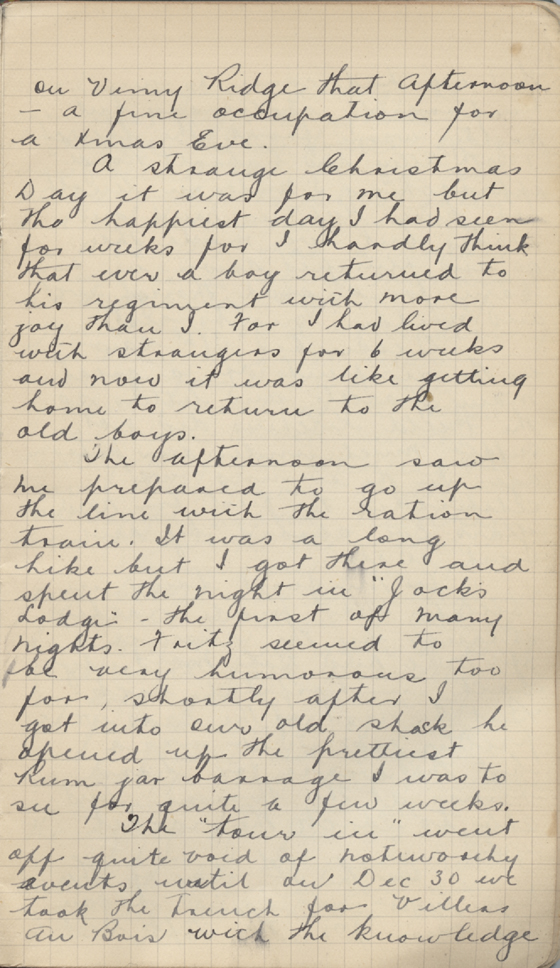 on Vimy Ridge that afternoon
- a fine occupation for
a Xmas Eve.
A strange Christmas
Day it was for me but
the happiest day I had seen
for weeks for I hardly think
that ever a boy returned to
his regiment with more
joy than I. For I had lived
with strangers for 6 weeks
and now it was like getting
home to return to the
old boys.
The afternoon saw
me prepared to go up
the line with the ration
train. It was a long
hike but I got there and
spent the night in "Jocks
Lodge" - the first of many
nights. Fritz seemed to
be very humorous too
for, shortly after I
got into our old shack he
opened up the prettiest
Rum jar barrage I was to
see for quite a few weeks.
The "tour in" went
off quite void of noteworthy
events until on Dec 30 we
took the trench for Villers
Au Bois with the knowledge